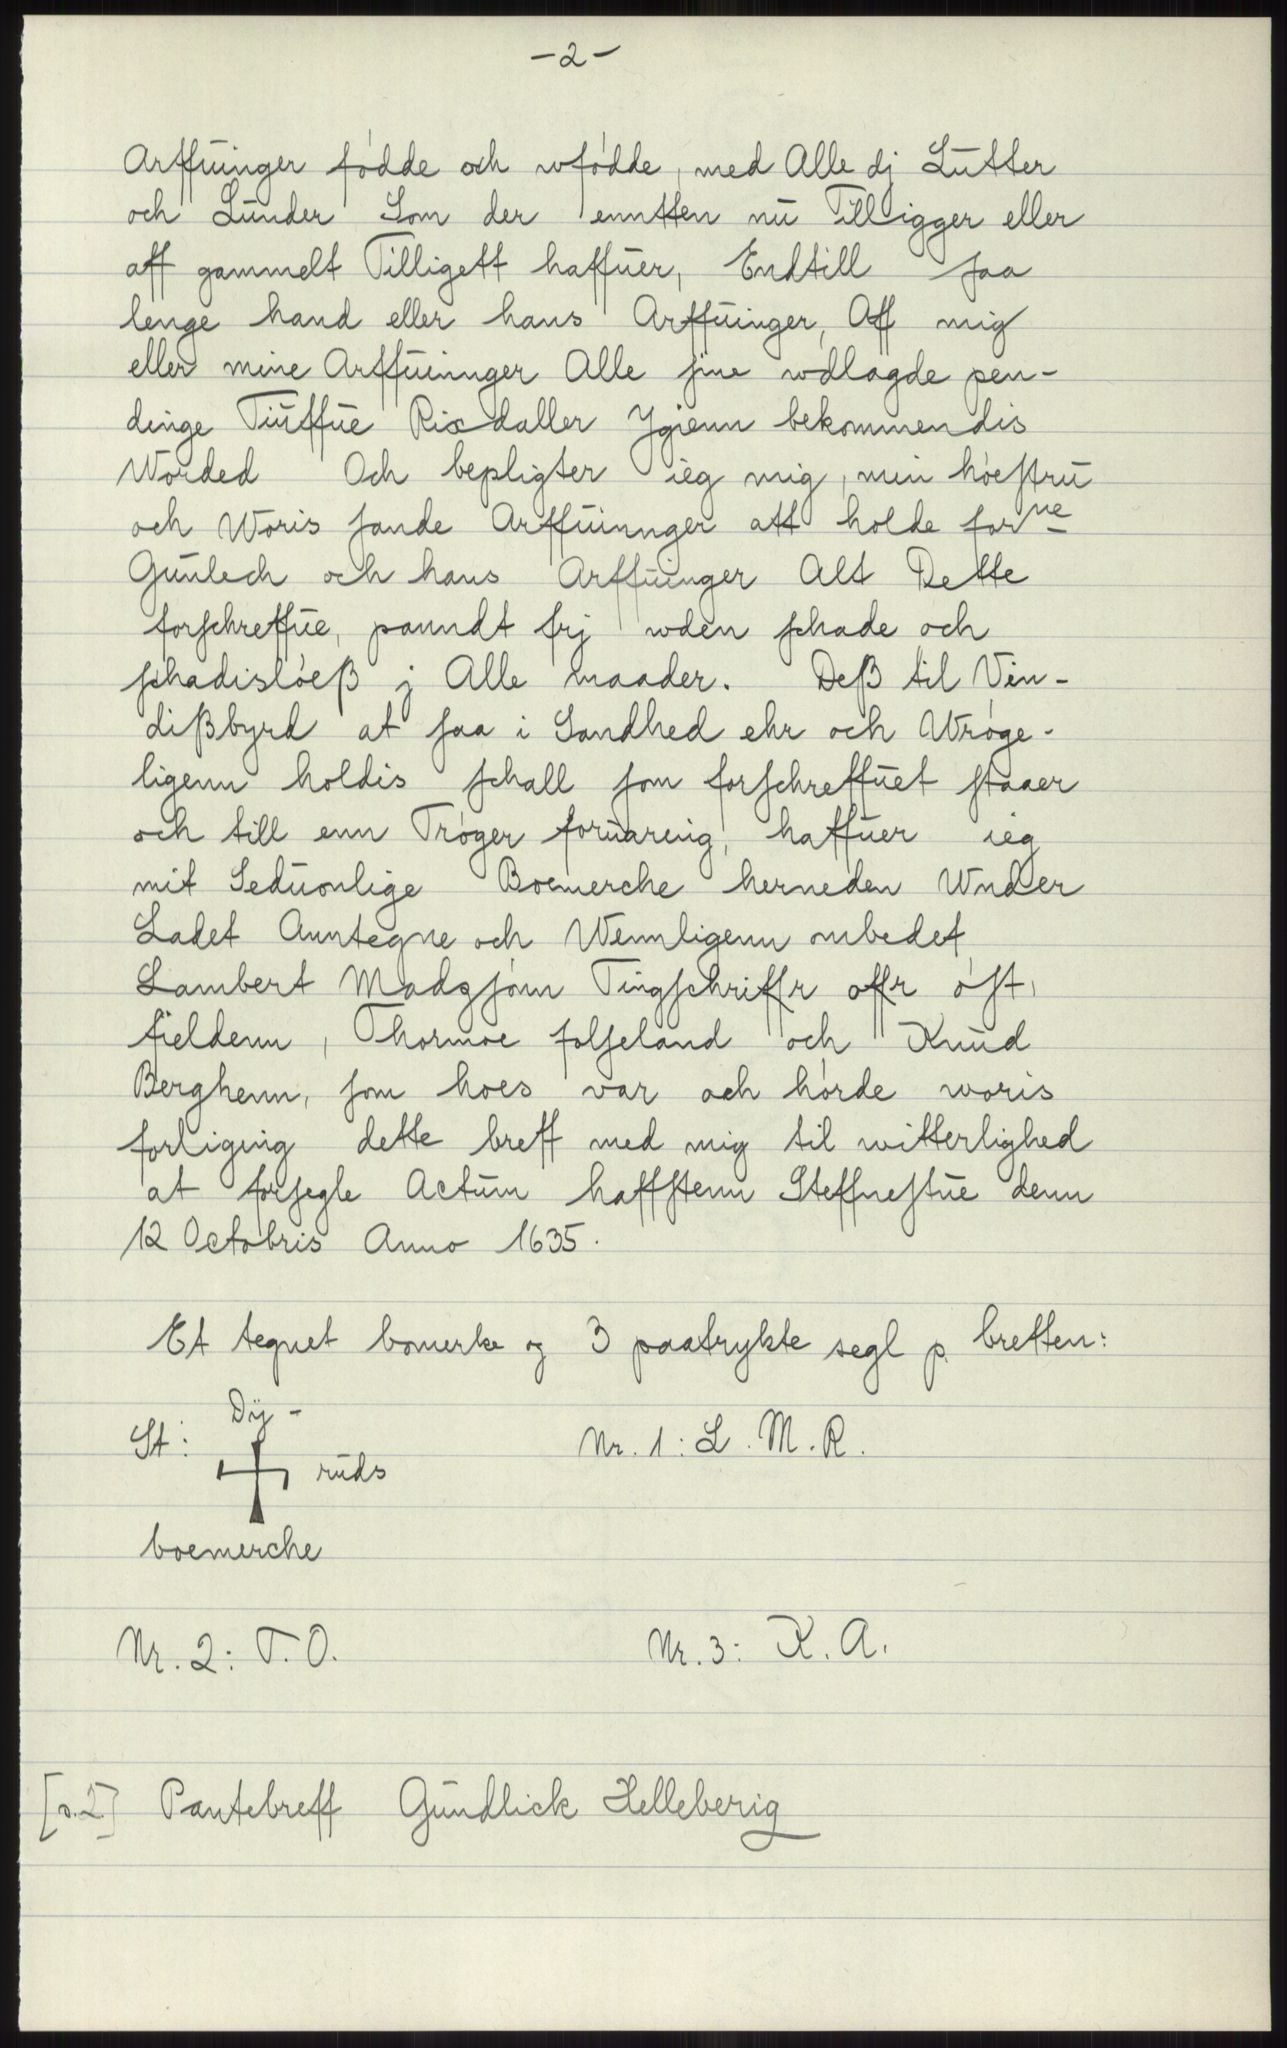 -2-
Arffuinger fódde och wfódde, med Alle dj Lutter
och Lunder Som der enntten nu Tilligger eller
aff gammelt Tilligett haffuer, Endtill saa
lenge hand eller hans Arffuinger, Aff mig
eller mine Arffuinnger Alle sine wdlagde pen-
dinge Tiuffue Rixdaller Ygienn bekommendis
Worded Och bepligter ieg mig, min hóestru
och Woris sande Arffuinnger att holde forne
Gunlech och hans Arffuinger Alt Dette
forschreffue, panndt frj wden schade och
schadislóeß j Alle maader. Deß til Vin-
dißbyrd at saa i Sandhed ehr och Wróge-
ligenn holdis schall som forschreffuet staaer
och till enn Tróger foruaring, haffuer ieg
mit Seduonlige Boemerche herneden Wnder
Ladet Anntegne och Wennligenn ombedet
Lambert Madssónn Tingschriffr offr óst,
fieldenn, Thormoe folseland och Knud
Berghenn, som hoes var och hórde woris
forliging dette breff med mig til witterlighed
at forsegle Actum haffstenn Steffnestue denn
12 Octobris Anno 1635.
Et tegnet bomerke og 3 paatrykte segl p. breffen:
Dÿ-
St: ruds
Nr. 1: L. M. R.
boemerche
Nr. 2: T. O.
Nr. 3: K. A.
[s.2] Pantebreff Gundlick Helleberig